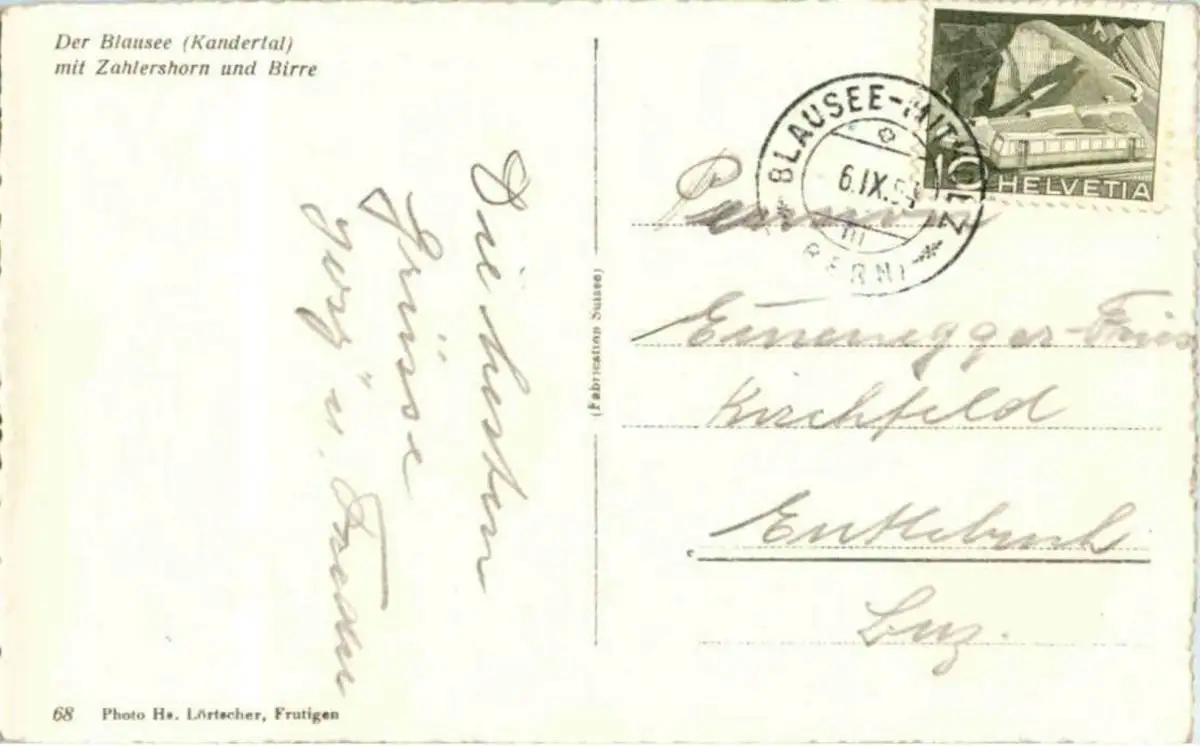 Der Blausee (Kandertal)
mit Zahlershorn und Birre
Die besten
Grüsse
u.
(Fabrication Suisse)
BLAUSEE-MITHOLZ
6.IX.5
(BERN)
10 HELVETIA
Emmenegger-
Kirchfeld
Entlebuch
Luz.
68 Photo Hs. Lörtscher, Frutigen